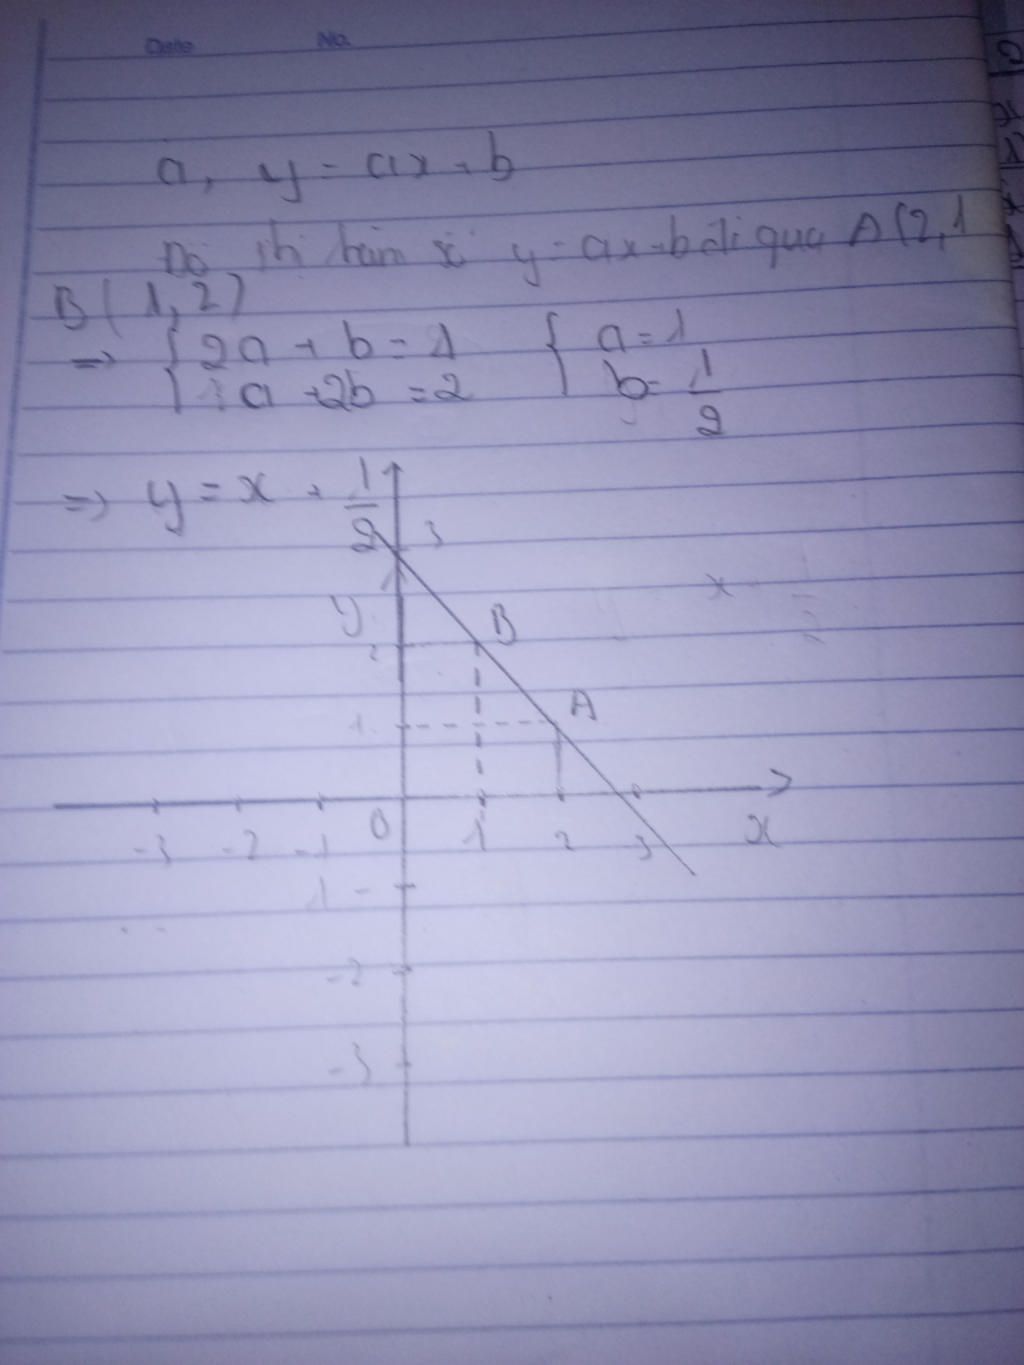 Date No.
a, y = ax + b
Đồ thị hàm số y = ax + b đi qua A(2,1
B(1,2)
=> { 2a + b = 1 { a = 1
{ a + 2b = 2 b = 1/2
=> y = x + 1/2
3
y
B
2
A
1
0
-3 -2 -1 1 2 3 x
1 -
-2
-3